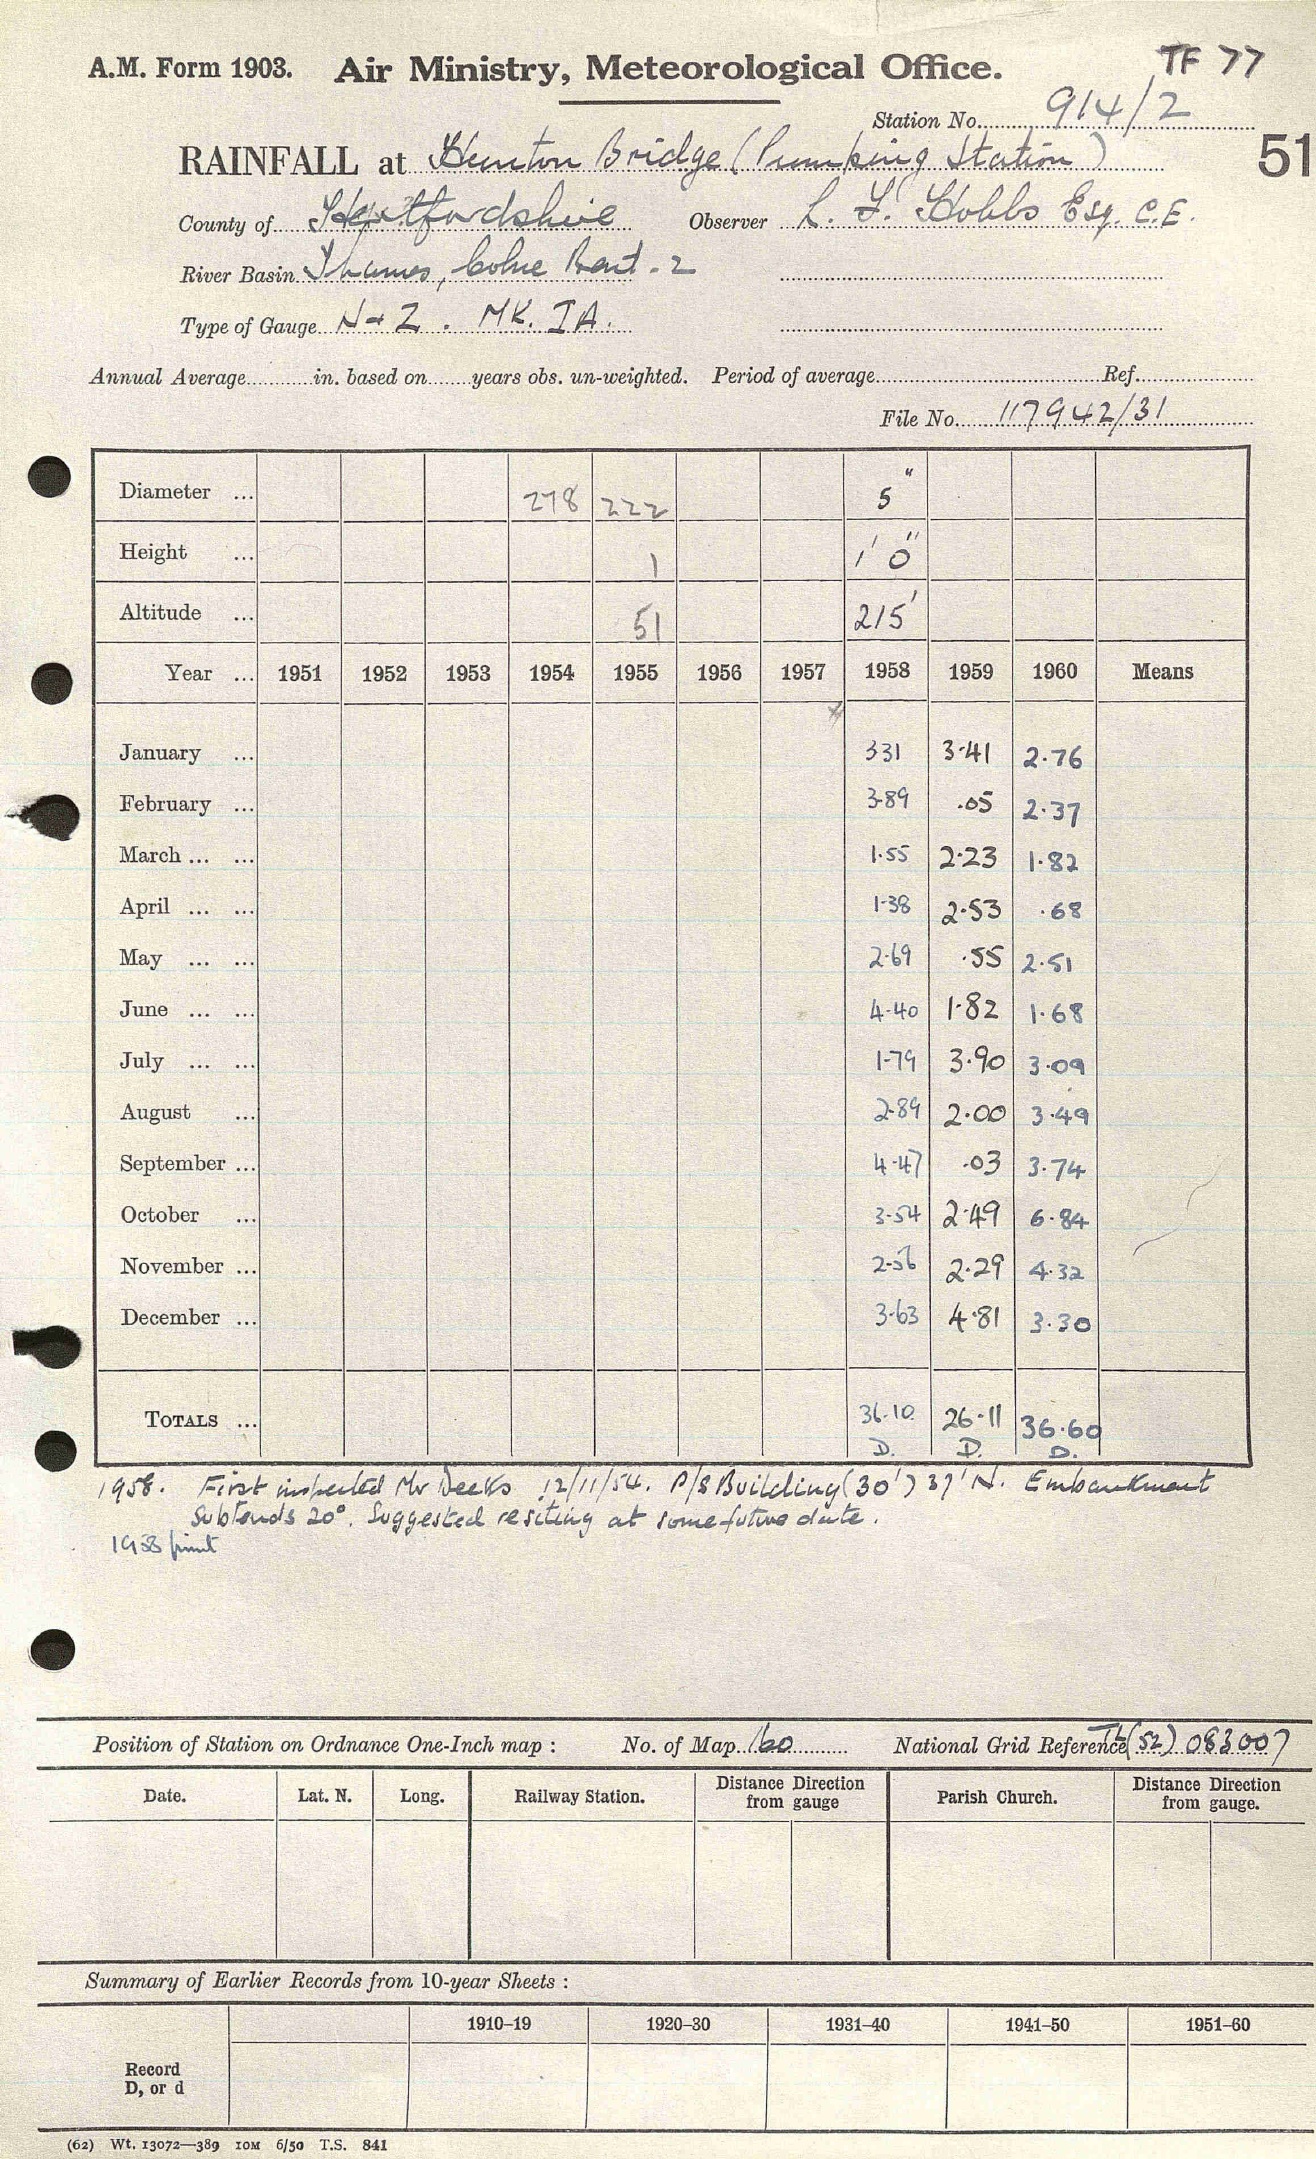 A.M. Form 1903. Air Ministry, Meteorological Office. TF 77
Station No. 914/2
RAINFALL at Hunton Bridge (Pumping Station) 51
County of Hertfordshire Observer L. F. Hobbs Esq. C.E.
River Basin Thames, Colne Bent - 2
Type of Gauge N+Z. MK. IA.
Annual Average in. based on years obs. un-weighted. Period of average Ref.
File No. 117942/31
Diameter ... 278 222 5"
Height ... 1 1' 0"
Altitude ... 51 215'
Year ... 1951 1952 1953 1954 1955 1956 1957 1958 1959 1960 Means
January ... 331 3.41 2.76
February ... 3.89 .05 2.37
March ... ... 1.55 2.23 1.82
April ... ... 1.38 2.53 .68
May ... ... 2.69 .55 2.51
June ... ... 4.40 1.82 1.68
July ... ... 1.79 3.90 3.09
August ... 2.89 2.00 3.49
September ... 4.47 .03 3.74
October ... 3.54 2.49 6.84
November ... 2.56 2.29 4.32
December ... 3.63 4.81 3.30
TOTALS ... 36.10 26.11 36.60
D. D. D.
1958. First inspected Mr Deeks 12/11/54. P/S Building (30') 37' N. Embankment
Subtends 20°. Suggested resiting at some future date.
1958 print
Position of Station on Ordnance One-Inch map : No. of Map 160 National Grid Reference TL (52) 083007
Date. Lat. N. Long. Railway Station. Distance Direction from gauge Parish Church. Distance Direction from gauge.
Summary of Earlier Records from 10-year Sheets :
1910–19 1920–30 1931–40 1941–50 1951–60
Record
D, or d
(62) Wt. 13072—389 10M 6/50 T.S. 841